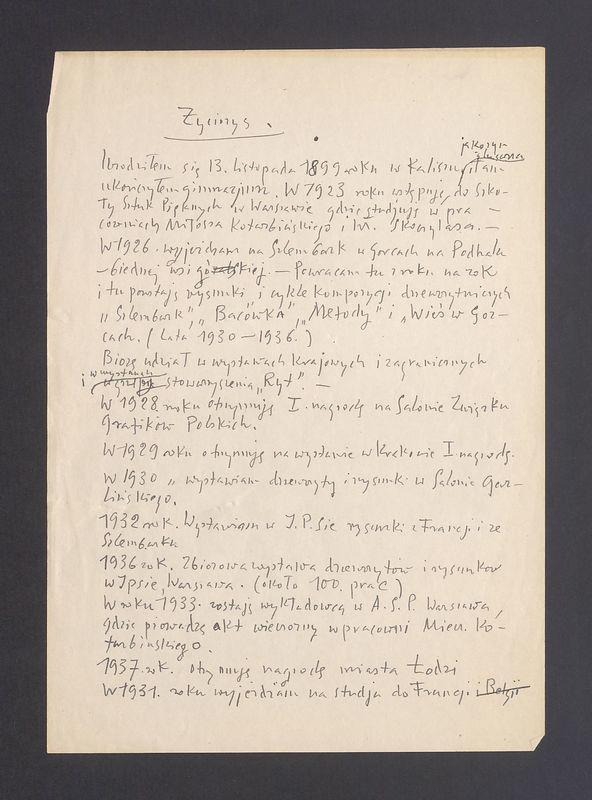 Życiorys.
jako syn
ślusarza
Urodziłem się 13. listopada 1899 roku w Kaliszu, tam
ukończyłem gimnazjum. W 1923 roku wstępuję do Szko-
ły Sztuk Pięknych w Warszawie gdzie studjuję w pra-
cowniach Miłosza Kotarbińskiego i Wł. Skoczylasa. —
W 1926. wyjeżdżam na Szlembark w Gorcach na Podhalu
– biednej wsi góralskiej. – Powracam tu z roku na rok
i tu powstają rysunki i cykle kompozycji drzeworytniczych
„Szlembark", „Bacówka", „Metody" i „Wieś w Gor-
cach. (Lata 1930 – 1936.)
Biorę udział w wystawach krajowych i zagranicznych
i w wystawach stowarzyszenia „Ryt". –
W 1928. roku otrzymuję I. nagrodę na Salonie Związku
Grafików Polskich.
W 1929 roku otrzymuję na wystawie w Krakowie I nagrodę.
W 1930 „ wystawiam drzeworyty i rysunki w Salonie Gar-
lińskiego.
1932 rok. Wystawiam w I.P.Sie rysunki z Francji i ze
Szlembarku
1936 rok. Zbiorowa wystawa drzeworytów i rysunków
w Ipsie, Warszawa. (około 100. prac)
W roku 1933. zostaję wykładowcą w A.S.P. Warszawa,
gdzie prowadzę akt wieczorny w pracowni Miecz. Ko-
tarbińskiego.
1937. rok. otrzymuję nagrodę miasta Łodzi
W 1931. roku wyjeżdżam na studja do Francji i Belgji